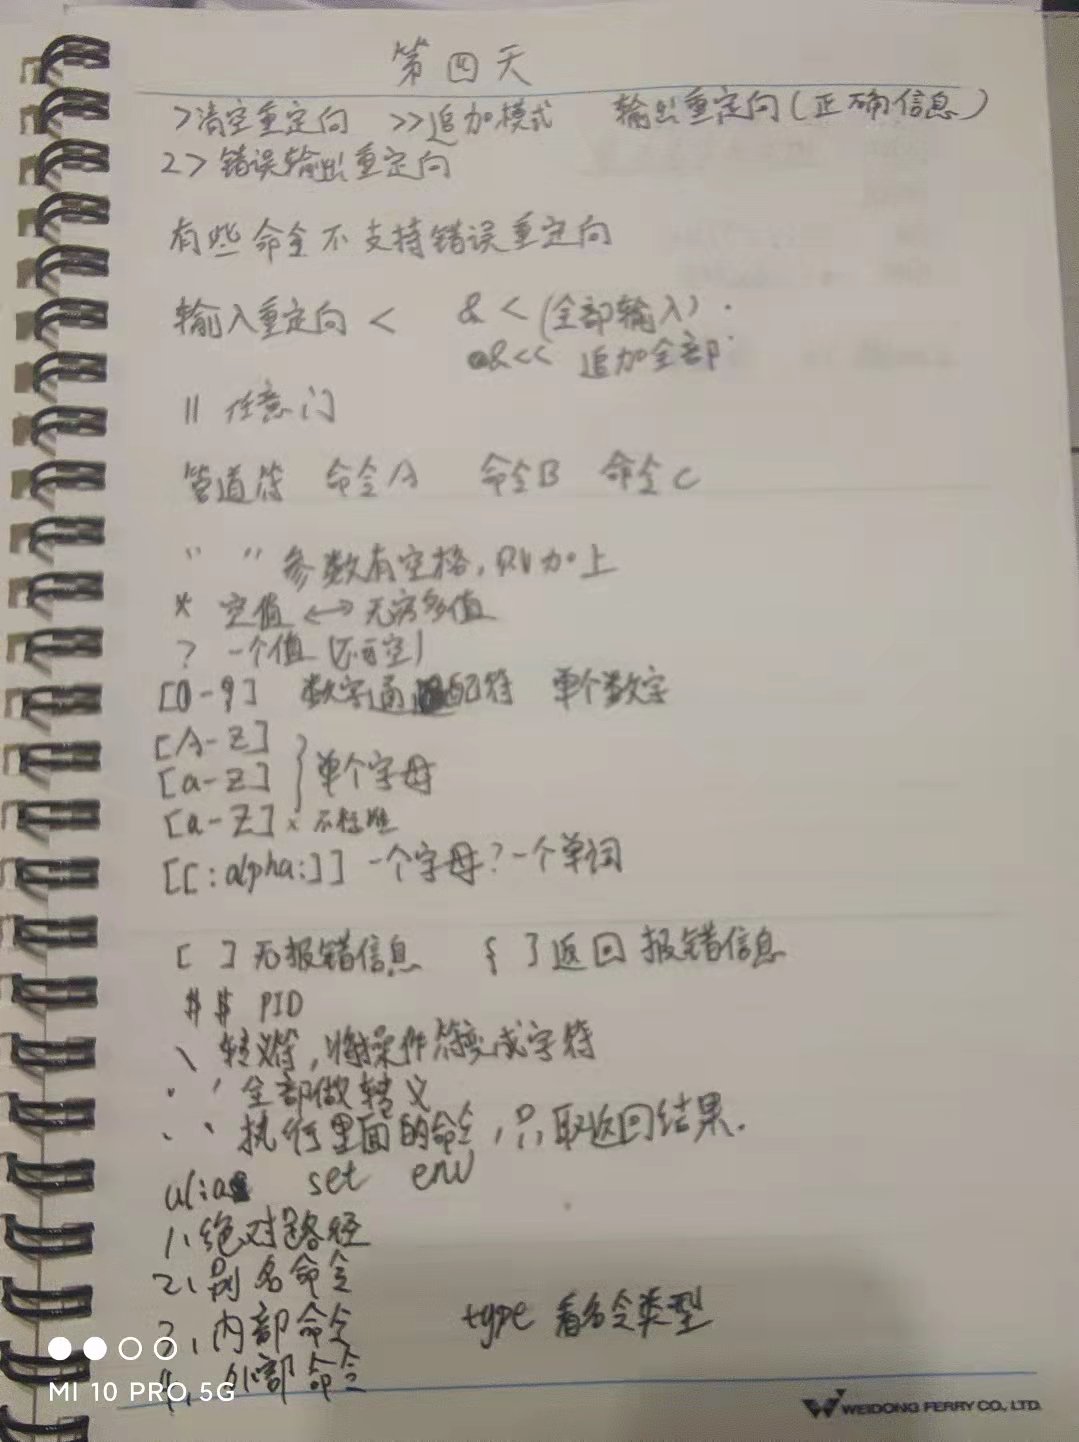 第四天
>清空重定向 >>追加模式 输出重定向(正确信息)
2> 错误输出重定向
有些命令不支持错误重定向
输入重定向 < & < (全部输入)
&<< 追加全部
|| 任意门
管道符 命令A 命令B 命令C
" " 参数有空格,可以加上
* 空值 ↔ 无穷多值
? 一个值 (不可空)
[0-9] 数字通配符 单个数字
[A-Z]
[a-z] } 单个字母
[a-Z] × 不标准
[[:alpha:]] 一个字母?一个单词
[ ] 无报错信息 { } 返回报错信息
$$ PID
\ 转义符,将操作符变成字符
' ' 全部做转义
` ` 执行里面的命令,只取返回结果.
alias set env
1、绝对路径
2、别名命令
3、内部命令 type 看命令类型
4、外部命令
MI 10 PRO 5G
WEIDONG FERRY CO., LTD.